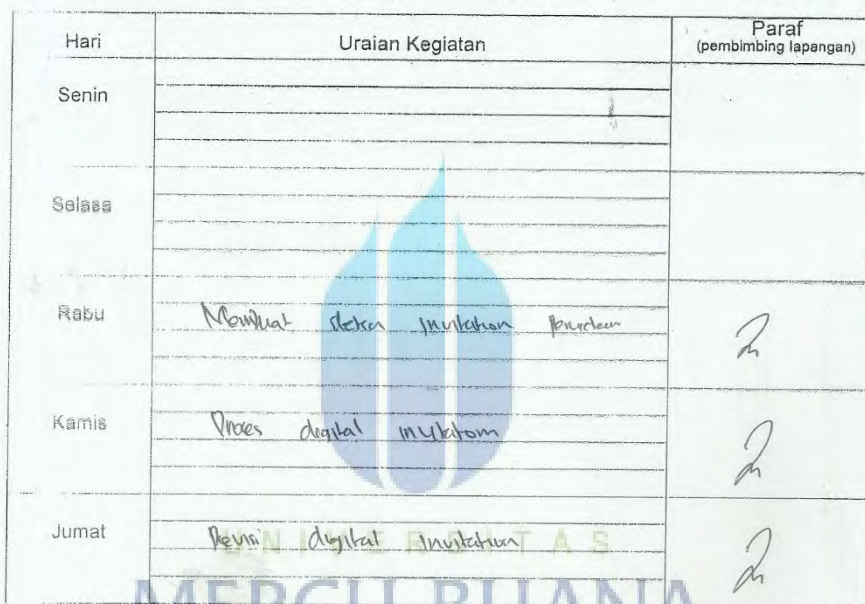 Hari Uraian Kegiatan Paraf
(pembimbing lapangan)
Senin
Selasa
Rabu Membuat sketsa invitation
Kamis Proses digital invitation
Jumat Revisi digital invitation
UNIVERSITAS
MERCU BUANA